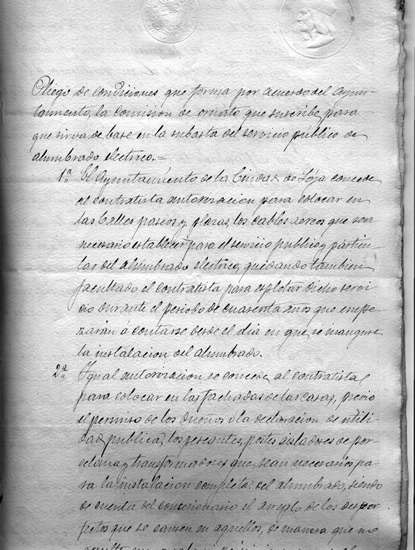 Pliego de condiciones que forma por acuerdo del Ayun-
tamiento, la Comision de ornato que suscribe, para
que sirva de base en la subasta del servicio publico de
alumbrado electrico.=
1ª El Ayuntamiento de la Ciudad de Loja concede
el contratista autorizacion para colocar en
las Calles paseos y plazas, los cables aereos que sea
necesario establecer para el servicio publico y particu-
lar del alumbrado electrico, quedando tambien
facultado el contratista para esplotar dicho servi-
cio durante el periodo de cuarenta años que empe-
zarán a contarse desde el dia en que se inaugure
la instalacion del alumbrado.
2ª Igual autorizacion se concede al contratista
para colocar en las fachadas de las casas, previo
el permiso de los dueños ó la declaracion de utili-
dad publica, los pescantes, postes aisladores de por-
celana y transformadores que sean necesarios pa-
ra la instalacion completa del alumbrado, siendo
de cuenta del concesionario el arreglo de los desper-
fectos que se causen en aquellos, de manera que no